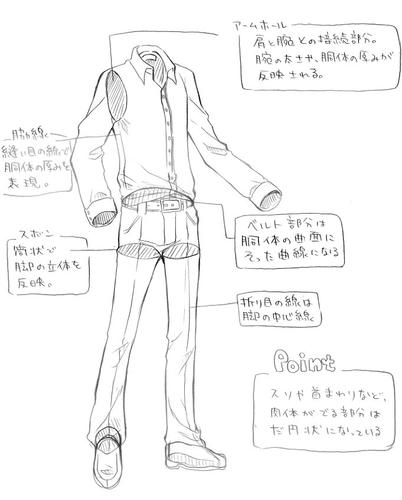 アームホール
肩と腕との接続部分。
腕の太さや、胴体の厚みが
反映される。
脇線
縫い目の線で
胴体の厚みを
表現。
ズボン
筒状で
脚の立体を
反映。
ベルト部分は
胴体の曲面に
そった曲線になる
折り目の線は
脚の中心線
Point
スソや首まわりなど、
肉体がでる部分は
だ円状になっている